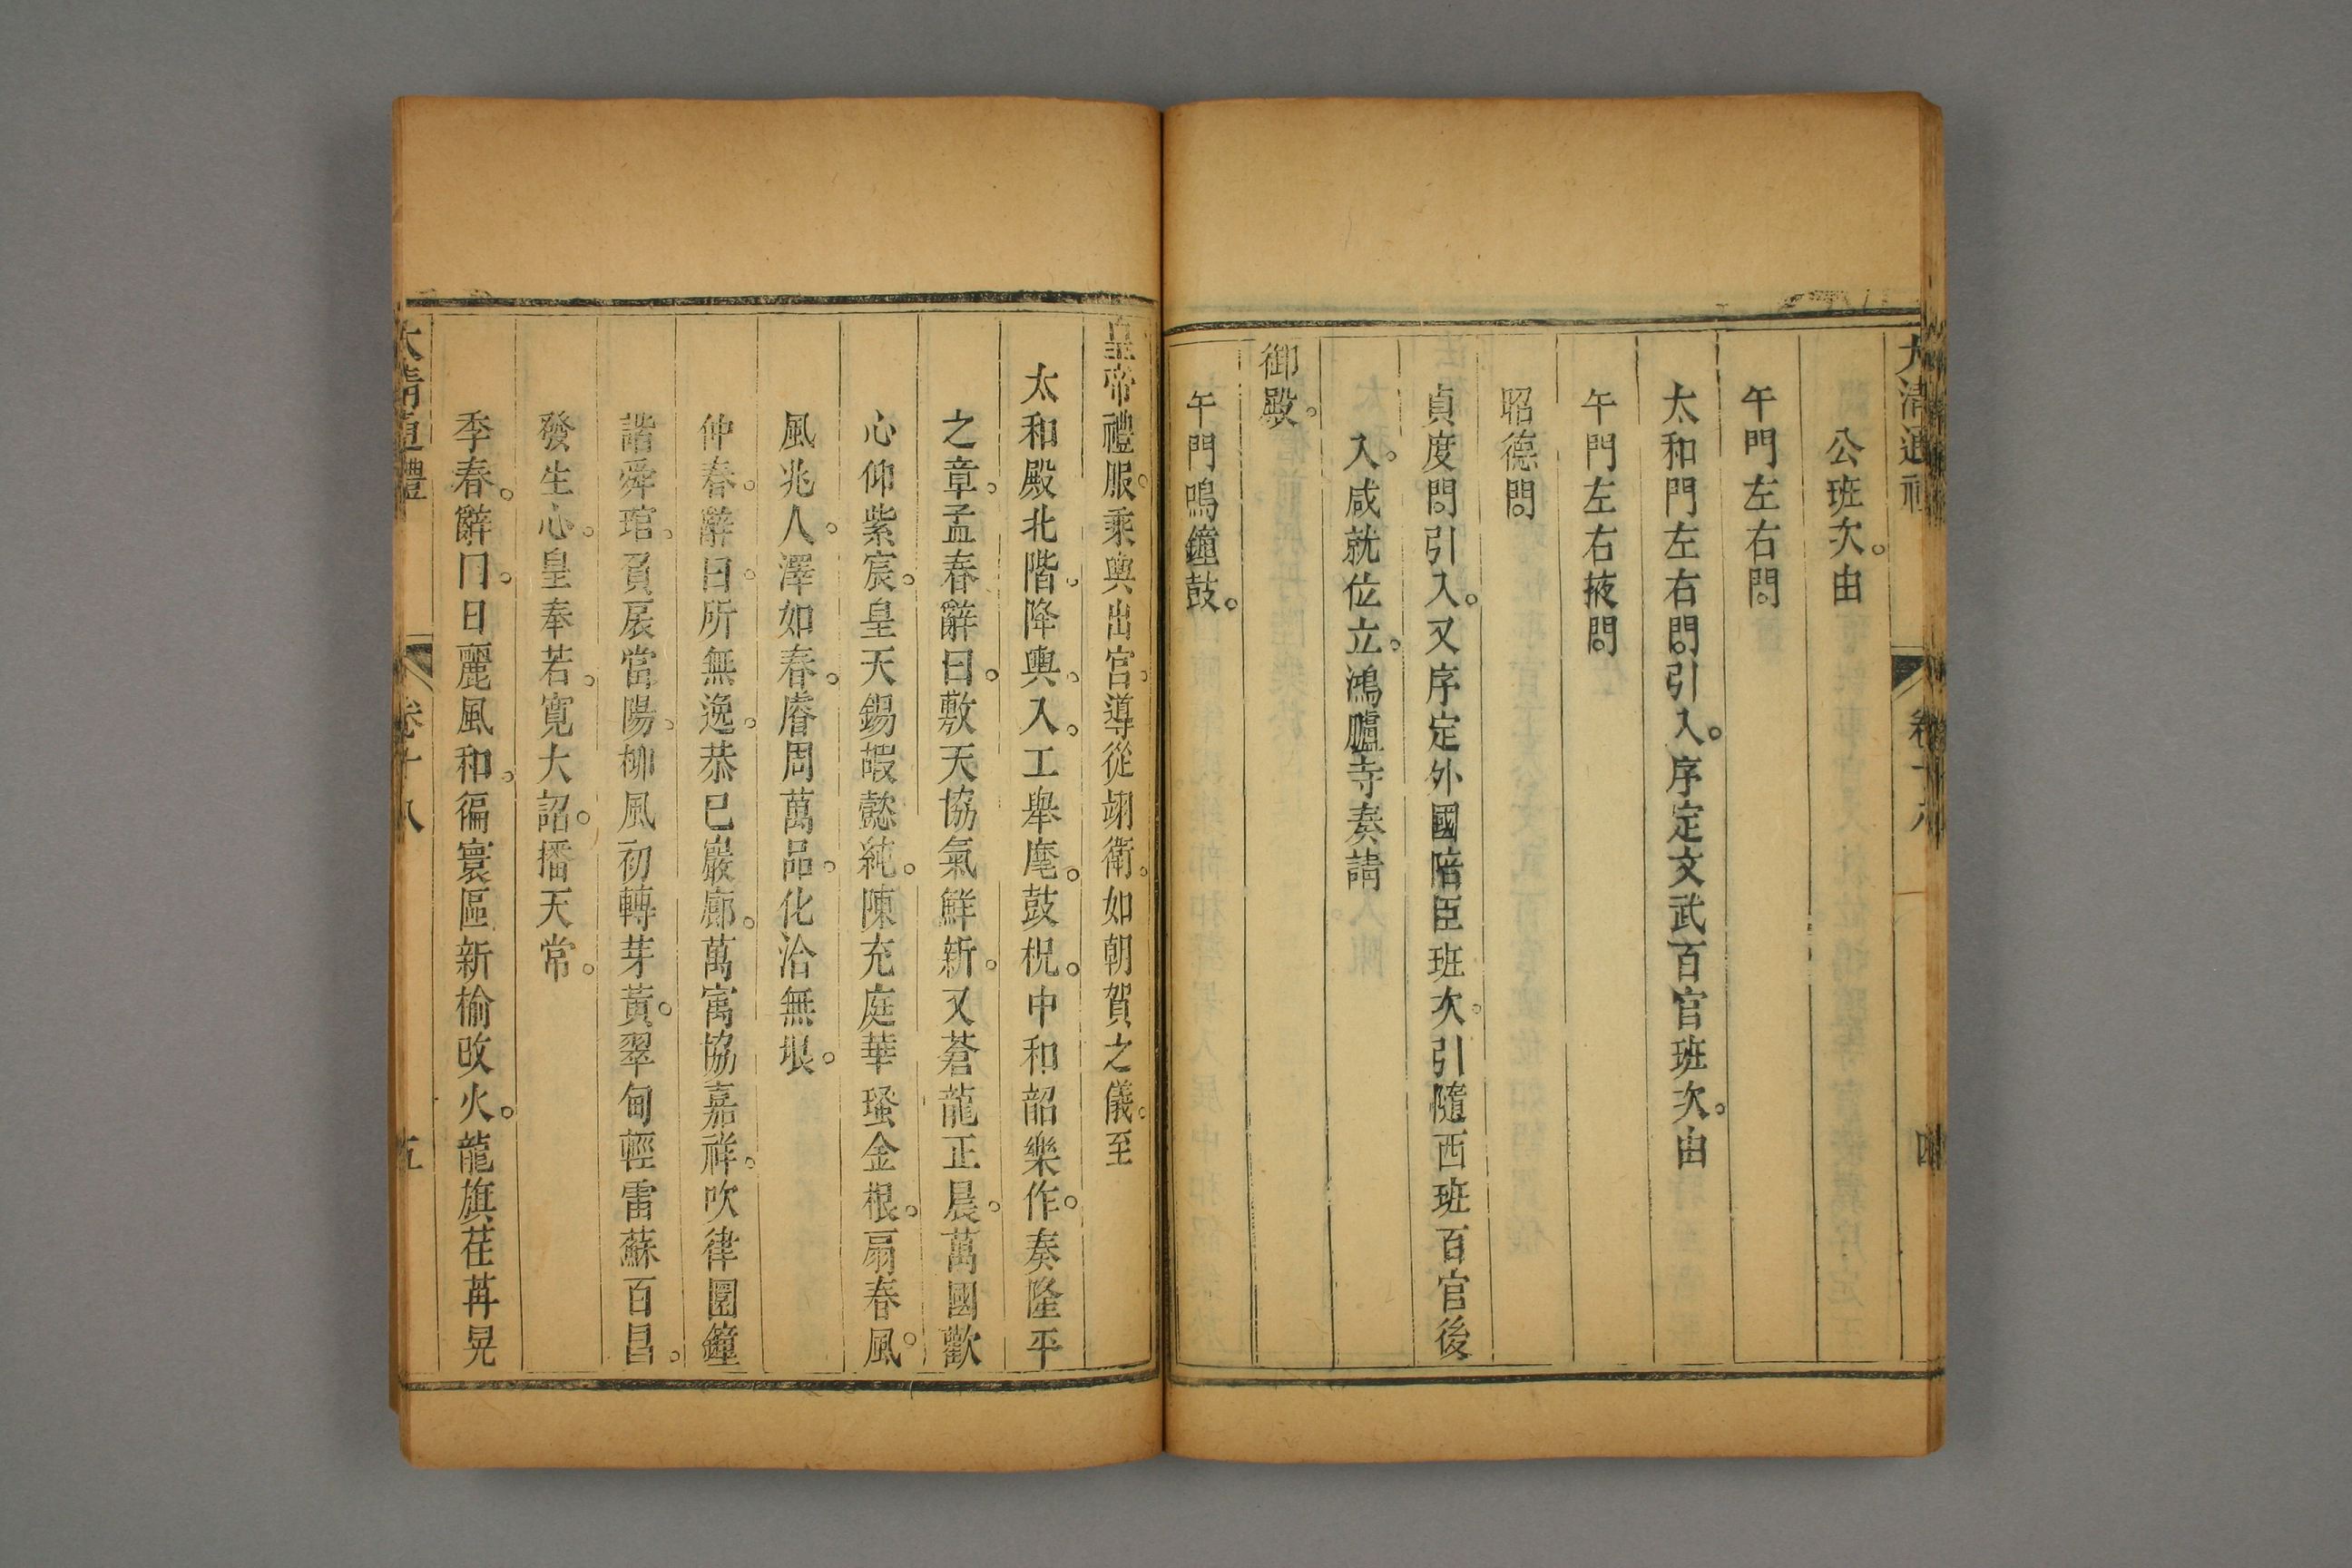 大清通禮 卷十八 四
公班次。由
午門左右門。
太和門左右門。引入。序定文武百官班次。由
午門左右掖門。
昭德門。
貞度門。引入。又序定外國陪臣班次。引隨西班百官後
入。咸就位立。鴻臚寺奏請
御殿。
午門鳴鐘鼓。
皇帝禮服。乘輿出宮。導從翊衛。如朝賀之儀。至
太和殿北階。降輿。入。工舉麾。鼓柷。中和韶樂作。奏隆平
之章。孟春辭曰。敷天協氣鮮新。又蒼龍正晨。萬國歡
心仰紫宸。皇天錫嘏懿純。陳充庭華瑵金根。扇春風。
風兆人。澤如春。膺周萬品。化洽無垠。
仲春。辭曰。所無逸。恭已巖廊。萬㝢協嘉祥。吹律圜鐘
諧舜琯。負扆當陽。柳風初轉芽黃。翠甸輕雷蘇百昌。
發生心。皇奉若。寬大詔。播天常。
季春。辭曰。日麗風和。徧寰區新榆改火。龍旗荏苒晃
大清通禮 卷十八 五